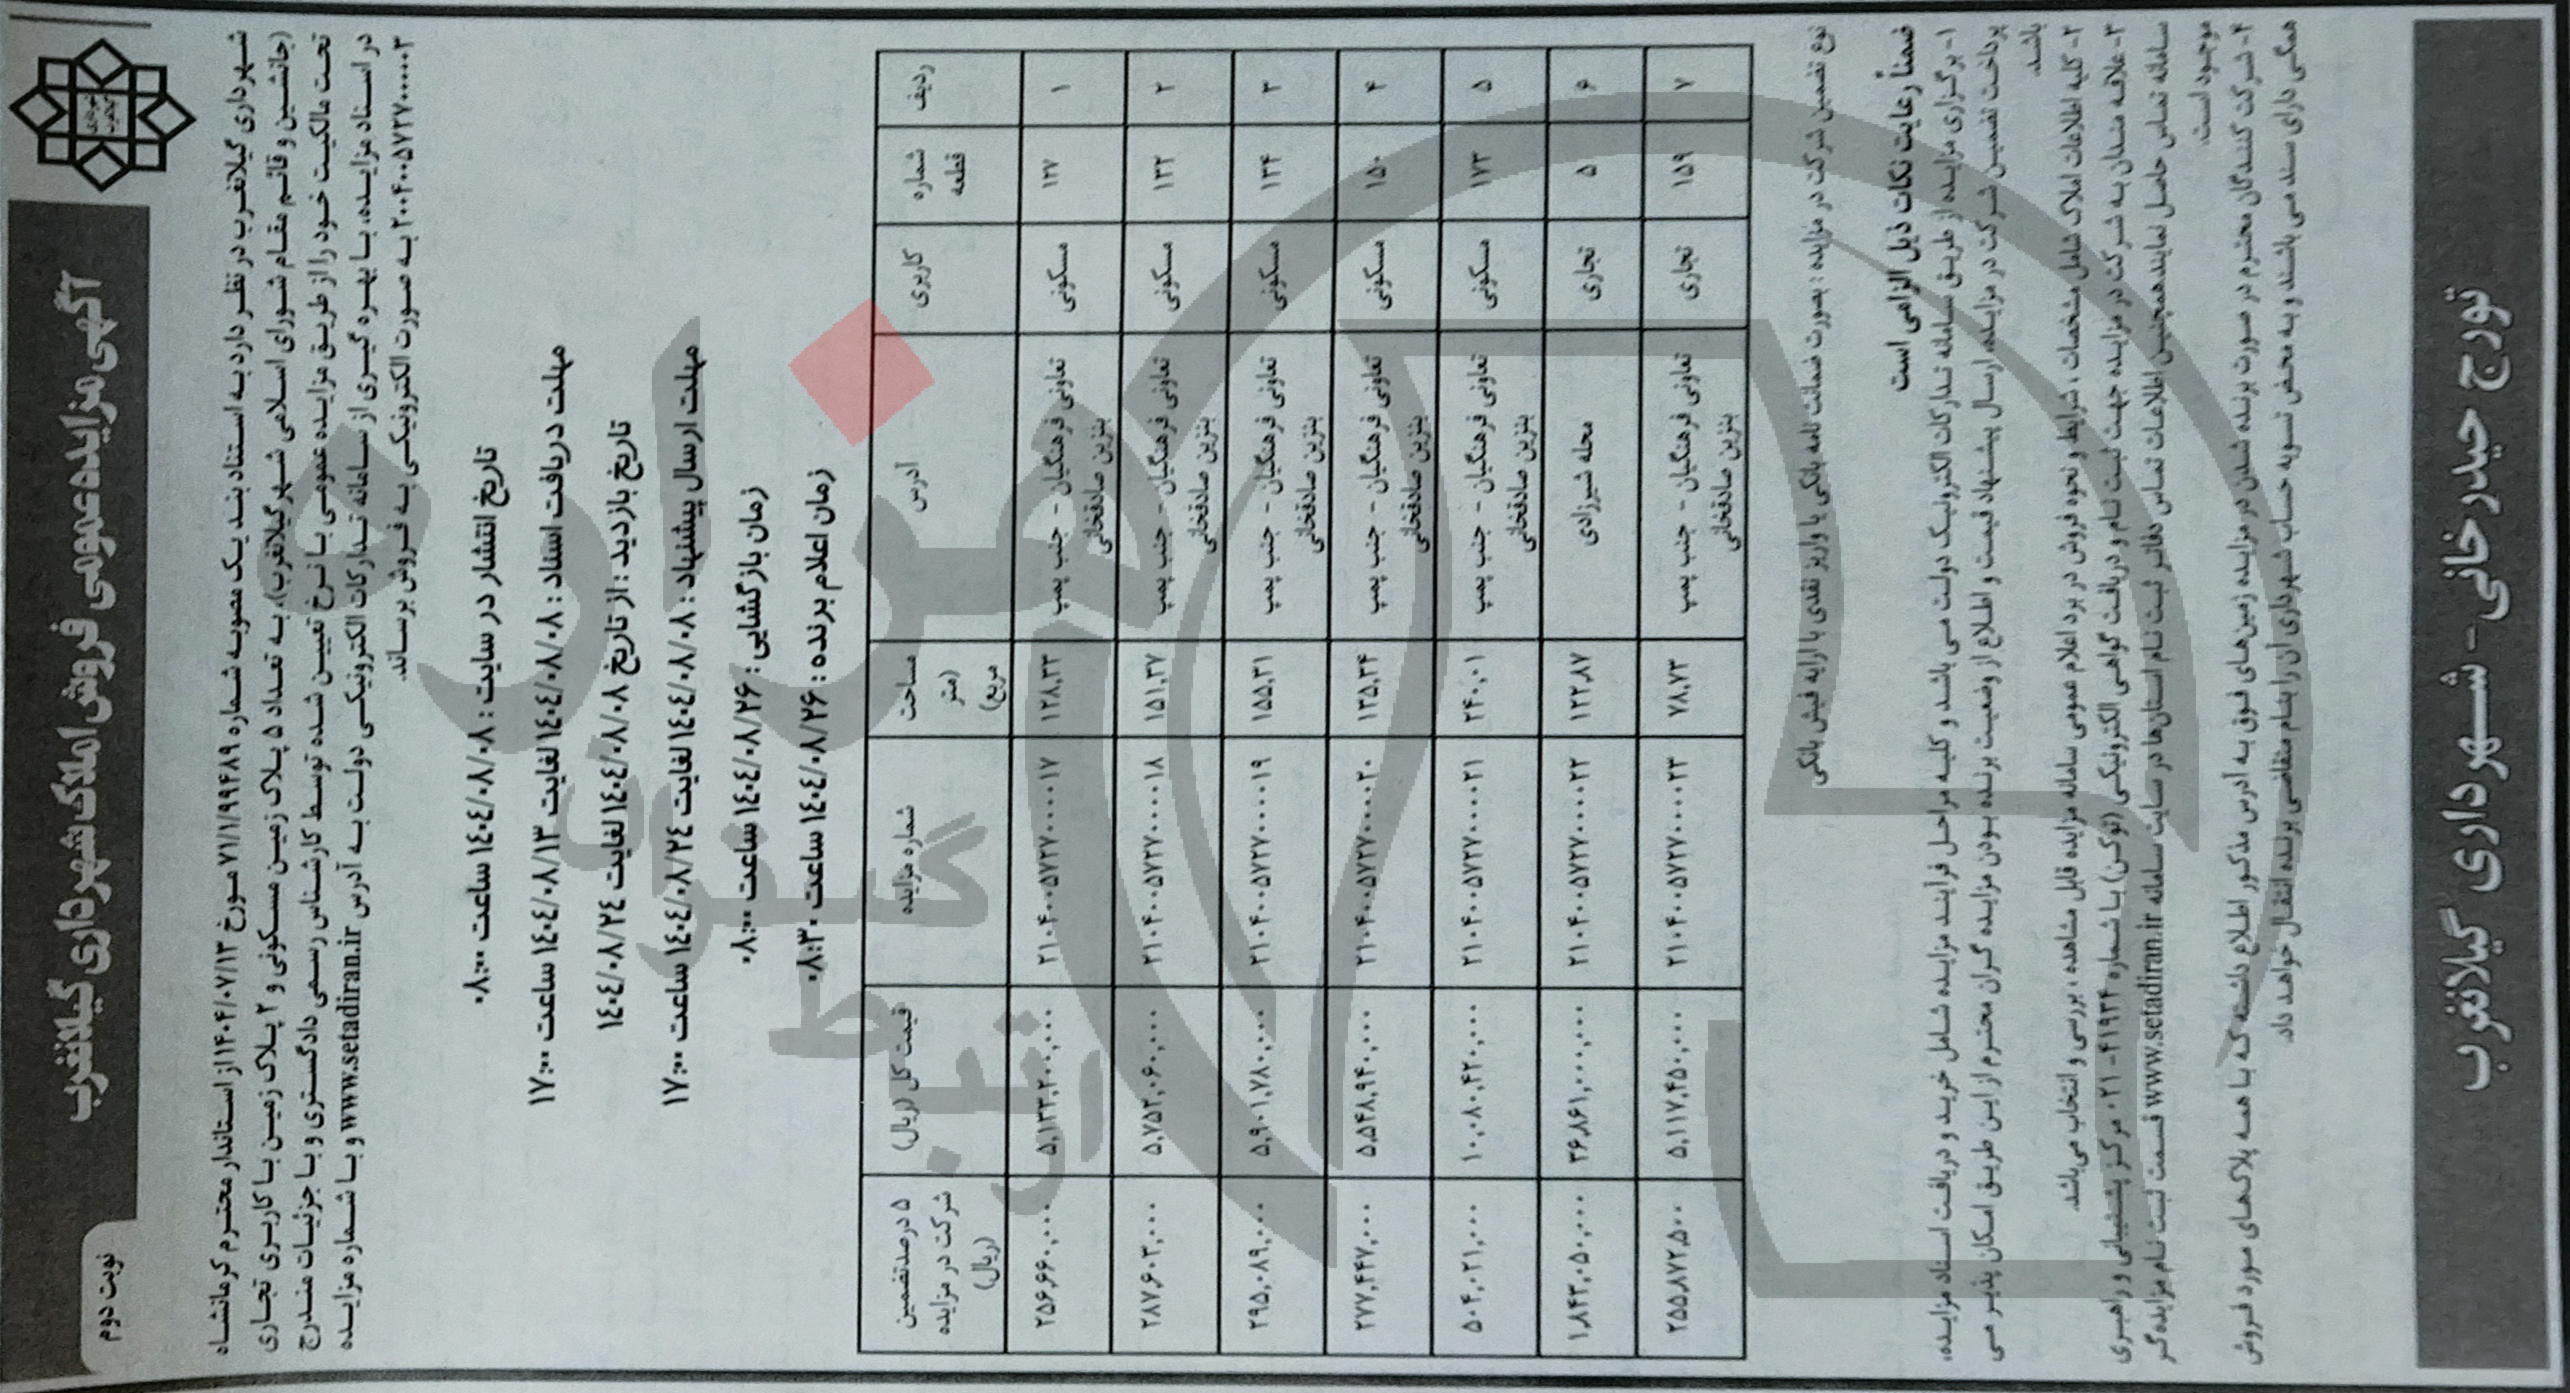 آگهی مزایده عمومی فروش املاک شهرداری گیلانغرب
نوبت دوم
شهرداری گیلانغرب در نظر دارد به استناد بند یک مصوبه شماره ۷۱/۱/۹۹۴۸۹ مورخ ۱۴۰۴/۰۷/۱۳ از استاندار محترم کرمانشاه
(جانشین و قائم مقام شورای اسلامی شهر گیلانغرب)، به تعداد ۵ پلاک زمین مسکونی و ۲ پلاک زمین با کاربری تجاری
تحت مالکیت خود را از طریق مزایده عمومی با نرخ تعیین شده توسط کارشناس رسمی دادگستری و با جزئیات مندرج
در اسناد مزایده، با بهره گیری از سامانه تدارکات الکترونیکی دولت به آدرس www.setadiran.ir و با شماره مزایده
۲۰۰۴۰۰۵۷۲۷۰۰۰۰۰۳ به صورت الکترونیکی به فروش برساند.
تاریخ انتشار در سایت : ۱٤۰٤/۰۸/۰۸ ساعت ۰۸:۰۰
مهلت دریافت اسناد : ۱٤۰٤/۰۸/۰۸ لغایت ۱٤۰٤/۰۸/۱۳ ساعت ۱۷:۰۰
تاریخ بازدید : از تاریخ ۱٤۰٤/۰۸/۰۸ لغایت ۱٤۰٤/۰۸/۲٤
مهلت ارسال پیشنهاد : ۱٤۰٤/۰۸/۰۸ لغایت ۱٤۰٤/۰۸/۲٤ ساعت ۱۷:۰۰
زمان بازگشایی : ۱٤۰٤/۰۸/۲۶ ساعت ۰۸:۰۰
زمان اعلام برنده : ۱٤۰٤/۰۸/۲۶ ساعت ۰۸:۳۰
ردیف شماره قطعه کاربری آدرس مساحت (متر مربع) شماره مزایده قیمت کل (ریال) ۵ درصد تضمین شرکت در مزایده (ریال)
۱ ۱۲۷ مسکونی تعاونی فرهنگیان - جنب پمپ بنزین صادقخانی ۱۲۸,۳۳ ۲۱۰۴۰۰۵۷۲۷۰۰۰۰۱۷ ۵,۱۳۳,۲۰۰,۰۰۰ ۲۵۶,۶۶۰,۰۰۰
۲ ۱۳۲ مسکونی تعاونی فرهنگیان - جنب پمپ بنزین صادقخانی ۱۵۱,۳۷ ۲۱۰۴۰۰۵۷۲۷۰۰۰۰۱۸ ۵,۷۵۲,۰۶۰,۰۰۰ ۲۸۷,۶۰۳,۰۰۰
۳ ۱۳۴ مسکونی تعاونی فرهنگیان - جنب پمپ بنزین صادقخانی ۱۵۵,۳۱ ۲۱۰۴۰۰۵۷۲۷۰۰۰۰۱۹ ۵,۹۰۱,۷۸۰,۰۰۰ ۲۹۵,۰۸۹,۰۰۰
۴ ۱۵۰ مسکونی تعاونی فرهنگیان - جنب پمپ بنزین صادقخانی ۱۳۵,۳۴ ۲۱۰۴۰۰۵۷۲۷۰۰۰۰۲۰ ۵,۵۴۸,۹۴۰,۰۰۰ ۲۷۷,۴۴۷,۰۰۰
۵ ۱۷۳ مسکونی تعاونی فرهنگیان - جنب پمپ بنزین صادقخانی ۲۴۰,۰۱ ۲۱۰۴۰۰۵۷۲۷۰۰۰۰۲۱ ۱۰,۰۸۰,۴۲۰,۰۰۰ ۵۰۴,۰۲۱,۰۰۰
۶ ۵ تجاری محله شیرزادی ۱۲۲,۸۷ ۲۱۰۴۰۰۵۷۲۷۰۰۰۰۲۲ ۳۶,۸۶۱,۰۰۰,۰۰۰ ۱,۸۴۳,۰۵۰,۰۰۰
۷ ۱۵۹ تجاری تعاونی فرهنگیان - جنب پمپ بنزین صادقخانی ۷۸,۷۳ ۲۱۰۴۰۰۵۷۲۷۰۰۰۰۲۳ ۵,۱۱۷,۴۵۰,۰۰۰ ۲۵۵,۸۷۲,۵۰۰
نوع تضمین شرکت در مزایده : بصورت ضمانت نامه بانکی یا واریز نقدی با ارایه فیش بانکی
ضمناً رعایت نکات ذیل الزامی است
۱- برگزاری مزایده از طریق سامانه تدارکات الکترونیک دولت می باشد و کلیه مراحل فرایند مزایده شامل خرید و دریافت اسناد مزایده،
پرداخت تضمین شرکت در مزایده، ارسال پیشنهاد قیمت و اطلاع از وضعیت برنده بودن مزایده گران محترم از این طریق امکان پذیر می
باشد.
۲- کلیه اطلاعات املاک شامل مشخصات ، شرایط و نحوه فروش در برد اعلام عمومی سامانه مزایده قابل مشاهده ، بررسی و انتخاب می‌باشد.
۳- علاقه مندان به شرکت در مزایده جهت ثبت نام و دریافت گواهی الکترونیکی (توکن) با شماره ۴۱۹۳۴-۰۲۱ مرکز پشتیبانی و راهبری
سامانه تماس حاصل نمایند همچنین اطلاعات تماس دفاتر ثبت نام استان‌ها در سایت سامانه www.setadiran.ir قسمت ثبت نام مزایده‌گر
موجود است.
۴- شرکت کنندگان محترم در صورت برنده شدن در مزایده زمین‌های فوق به آدرس مذکور اطلاع داشته که با همه پلاک‌های مورد فروش
همگی دارای سند می باشند و به محض تسویه حساب شهرداری آن را بنام متقاضی برنده انتقال خواهد داد.
تورج حیدرخانی - شهرداری گیلانغرب